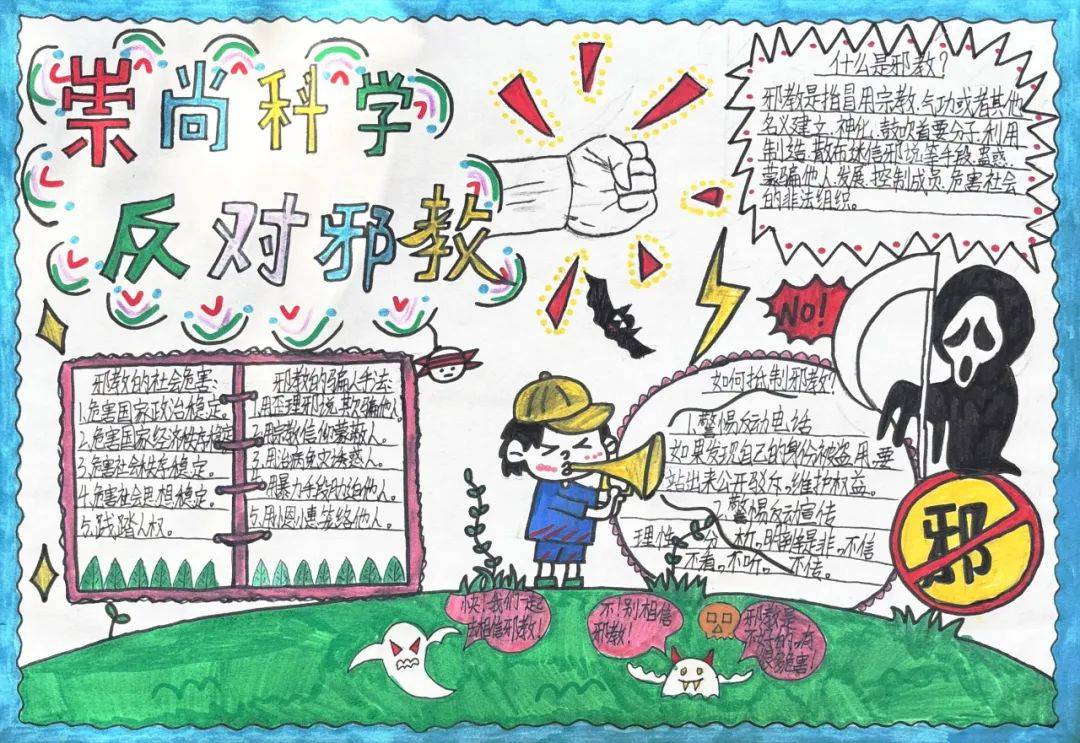 崇尚科学
反对邪教
什么是邪教?
邪教是指冒用宗教、气功或者其他
名义建立、神化、鼓吹首要分子,利用
制造、散布迷信邪说等手段,蛊惑、
蒙骗他人,发展、控制成员,危害社会
的非法组织。
NO!
邪教的社会危害:
1.危害国家政治稳定。
2.危害国家经济秩序稳定
3.危害社会秩序稳定。
4.危害社会思想稳定。
5.践踏人权。
邪教的骗人手法:
1.用歪理邪说,欺骗他人
2.用宗教信仰蒙蔽人。
3.用治病免灾诱惑人。
4.用暴力手段胁迫他人。
5.用小恩小惠笼络他人。
如何抵制邪教?
1.警惕反动电话
如果发现自己的身份被盗用,要
站出来公开驳斥。维护权益。
2.警惕反动宣传
理性分析。明辨是非。不信
不看。不听。不传。
邪
快!我们一起
去相信邪教!
不!别相信
邪教!
邪教是
不好的,有
很多危害!